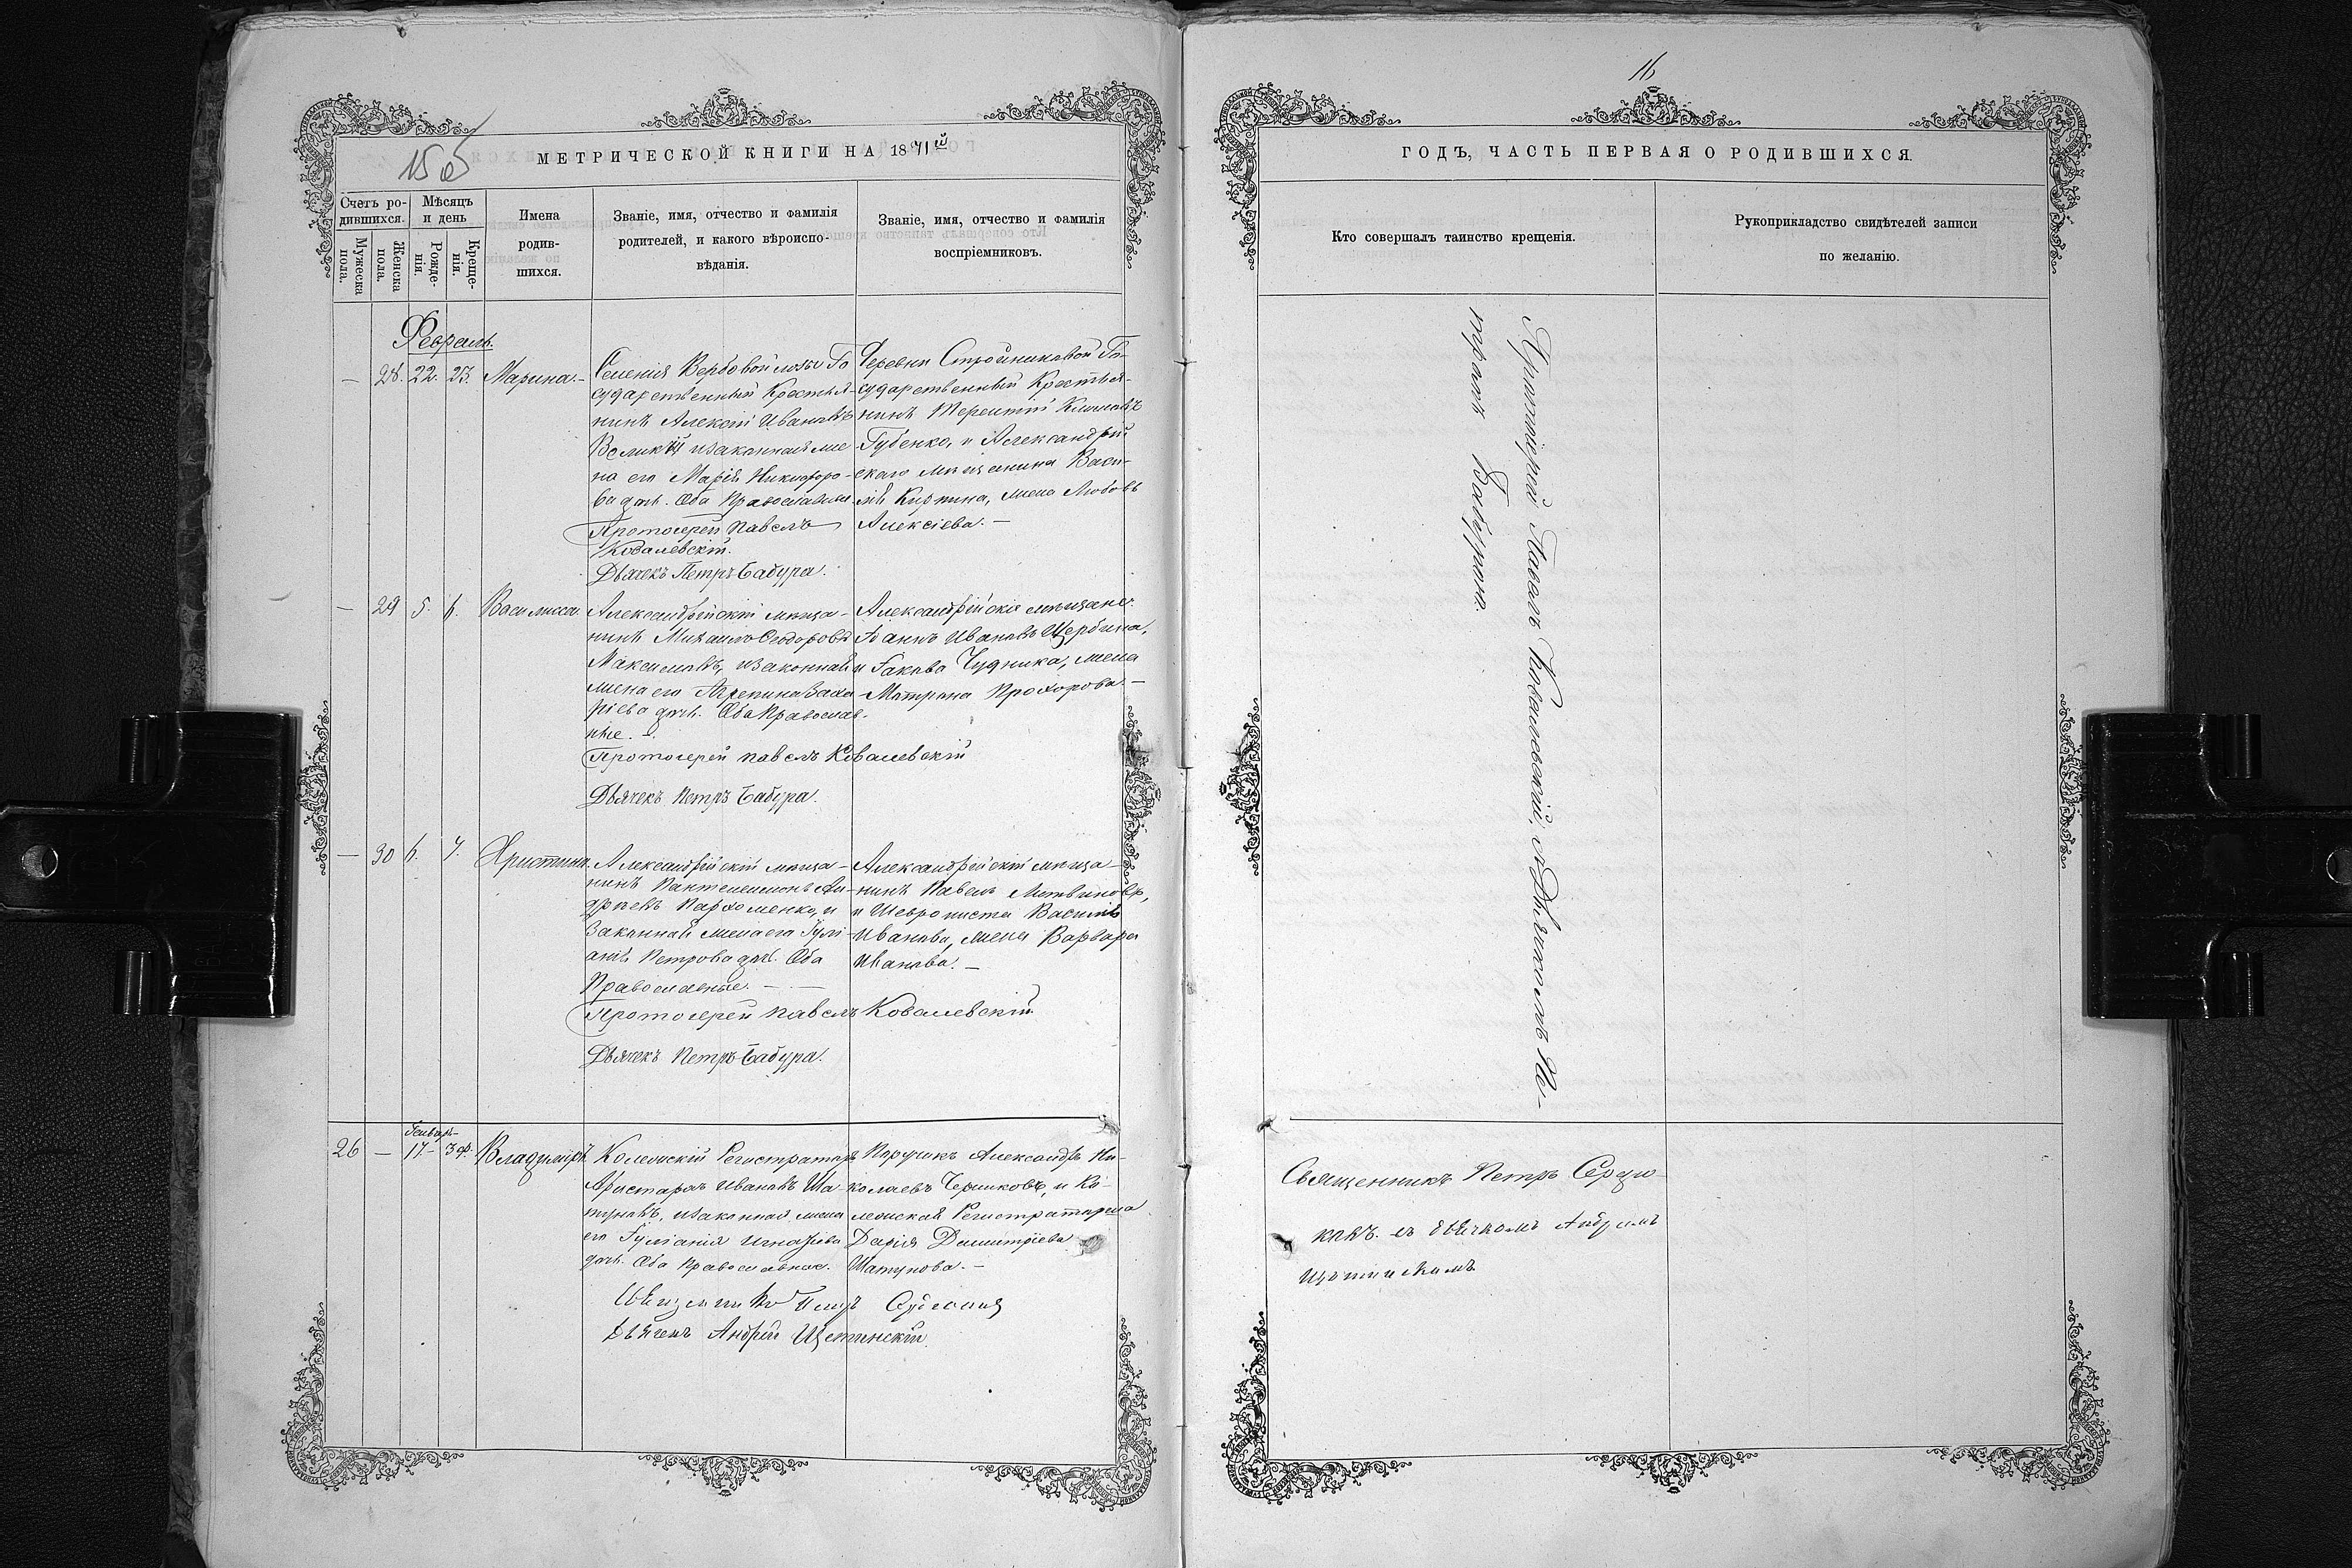 15 об
МЕТРИЧЕСКОЙ КНИГИ НА 1871й
Счетъ родившихся.
Мѣсяцъ и день
Имена родившихся.
Званіе, имя, отчество и фамилія
родителей, и какого вѣроиспо-
вѣданія.
Званіе, имя, отчество и фамилія
воспріемниковъ.
Мужеска пола.
Женска пола.
Рожде-
нія.
Креще-
нія.
Февраль.
— 28. 22. 23. Марина.
Селенія Вербовой лозы Го
сударственный Крестья-
нинъ Алексій Ивановъ
Великій и законная же
на его Марія Никифоро-
ва дочь. Оба Православные
Протоіерей Павелъ
Ковалевскій.
Дьячекъ Петръ Бабура.
Деревни Стройниковой Го-
сударственный Крестья-
нинъ Терентій Климовъ
Губенко, и Александрій
скаго мѣщанина Васи-
лія Кирпика, жена Любовь
Алексіева. —
— 29 5. 6. Василисса.
Александрійскій мѣща-
нинъ Михаилъ Ѳеодоровъ
Максимовъ, и законная
жена его Агрепина Заха
ріева дочь. Оба Православ-
ные. —
Протоіерей Павелъ Ковалевскій
Дьячекъ Петръ Бабура.
Александрійскіе мѣщане
Іоаннъ Ивановъ Щербина,
и Іакова Чудника, жена
Матрона Прохорова. —
— 30 6. 7. Христина.
Александрійскій мѣща-
нинъ Пантелеимонъ Ан-
дреевъ Пархоменко, и
Законная жена его Іулі-
анія Петрова дочь. Оба
Православные. —
Протоіерей Павелъ Ковалевскій
Дьячекъ Петръ Бабура.
Александрійскій мѣща-
нинъ Павелъ Литвиновъ,
и Василія
Иванова, жена Варвара
Иванова. —
Генварь
26 — 17. Владиміръ
Колежскій Регистраторъ
Аристархъ Ивановъ Ша-
туновъ, и законная жена
его Іуліанія Игнатіева
дочь. Оба православные.
Священникъ Петръ
Дьячекъ Андрей Щетинскій.
Поручикъ Александръ Ни-
колаевъ Чериковъ, и Ко-
лежская Регистраторша
Дарія Димитріева
Шатунова. —
16
ГОДЪ, ЧАСТЬ ПЕРВАЯ О РОДИВШИХСЯ.
Кто совершалъ таинство крещенія.
Рукоприкладство свидѣтелей записи
по желанію.
Протоіерей Павелъ Ковалевскій, съ Дьячкомъ Пе-
тромъ Бабурою.
Священникъ Петръ
съ дьячкомъ Андреемъ
Щетинскимъ